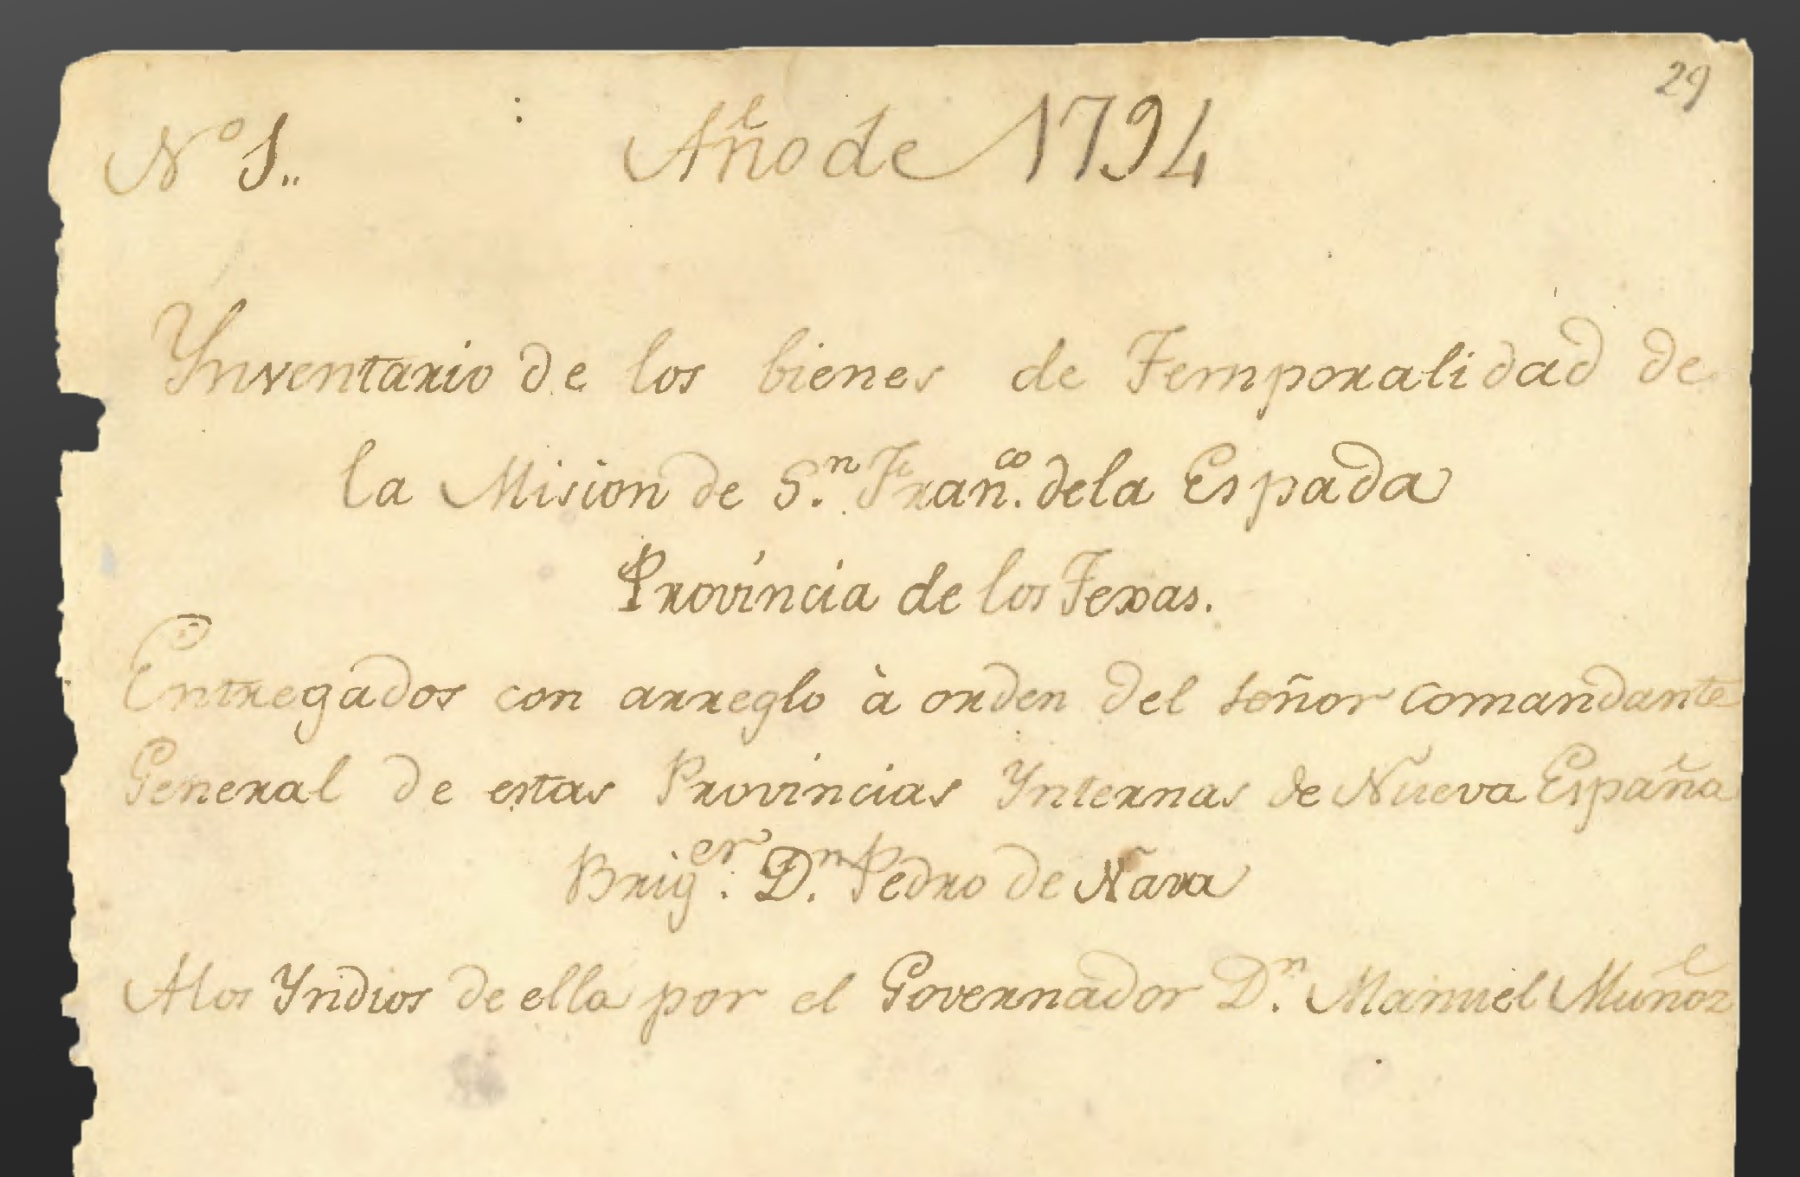 29
Nº 1.. Año de 1794
Ynventario de los bienes de Temporalidad de
la Mision de S.n Fran.co de la Espada
Provincia de los Texas.
Entregados con arreglo à orden del señor Comandante
General de estas Provincias Ynternas de Nueva España
Brig.er D.n Pedro de Nava
A los Yndios de ella por el Governador D.n Manuel Muñoz